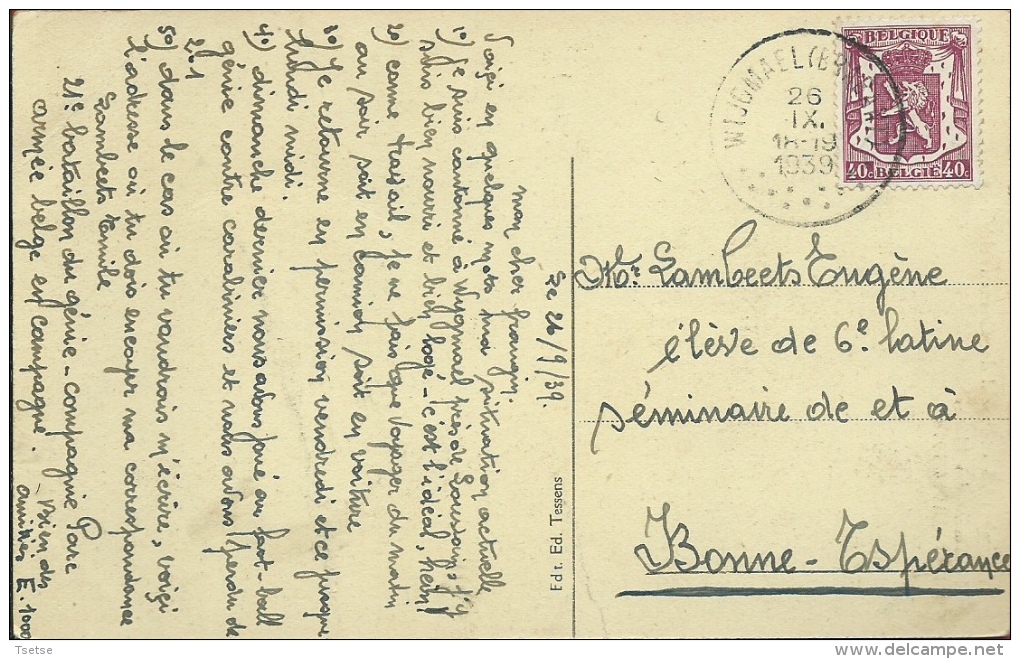 Le 26/9/39.
mon cher frangin,
Voici en quelques mots ma situation actuelle
1o) Je suis cantonné à Wygmael près de Louvain; j'y
suis bien nourri et bien logé - c'est l'idéal, hein!
2o) comme travail, je ne fais que voyager du matin
au soir soit en camion soit en voiture
3o) Je retourne en permission vendredi et ce jusque
lundi midi.
4o) dimanche dernier nous avons joué au foot-ball
génie contre carabiniers et nous avons perdu de
2-1
5o) dans le cas où tu voudrais m'écrire, voici
l'adresse où tu dois envoyer ma correspondance
Lambeets Emile
21e bataillon du génie - compagnie Parc
armée belge en campagne.
bien des
amitiés E.
Edt. Ed. Tessens
BELGIQUE
40c BELGIË 40c
WIJGMAEL (BRABANT)
26
IX.
18-19
1939
Mr. Lambeets Eugène
élève de 6e latine
séminaire de et à
Bonne-Espérance
Tsetse
delcampe.net